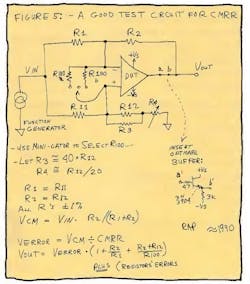 FIGURE 5: - A GOOD TEST CIRCUIT FOR CMRR
R1
R2
+VS
VIN
R100
DUT
a b
VOUT
-VS
R11
R12
R3
R4
FUNCTION
GENERATOR
INSERT
OPTIONAL
BUFFER:
- USE MINI-GATOR TO SELECT R100 -
- LET R3 ≅ 40·R12
R4 ≅ R12/20
R1 = R11
R2 = R12
ALL R'S ±1%
VCM = VIN · R2/(R1+R2)
+VS
a
47
b
3904
3k
-VS
VERROR = VCM ÷ CMRR
VOUT = VERROR · (1 + R2/R1 + R2+R12/R100)
PLUS (RESISTORS' ERRORS
RAP ≈1990